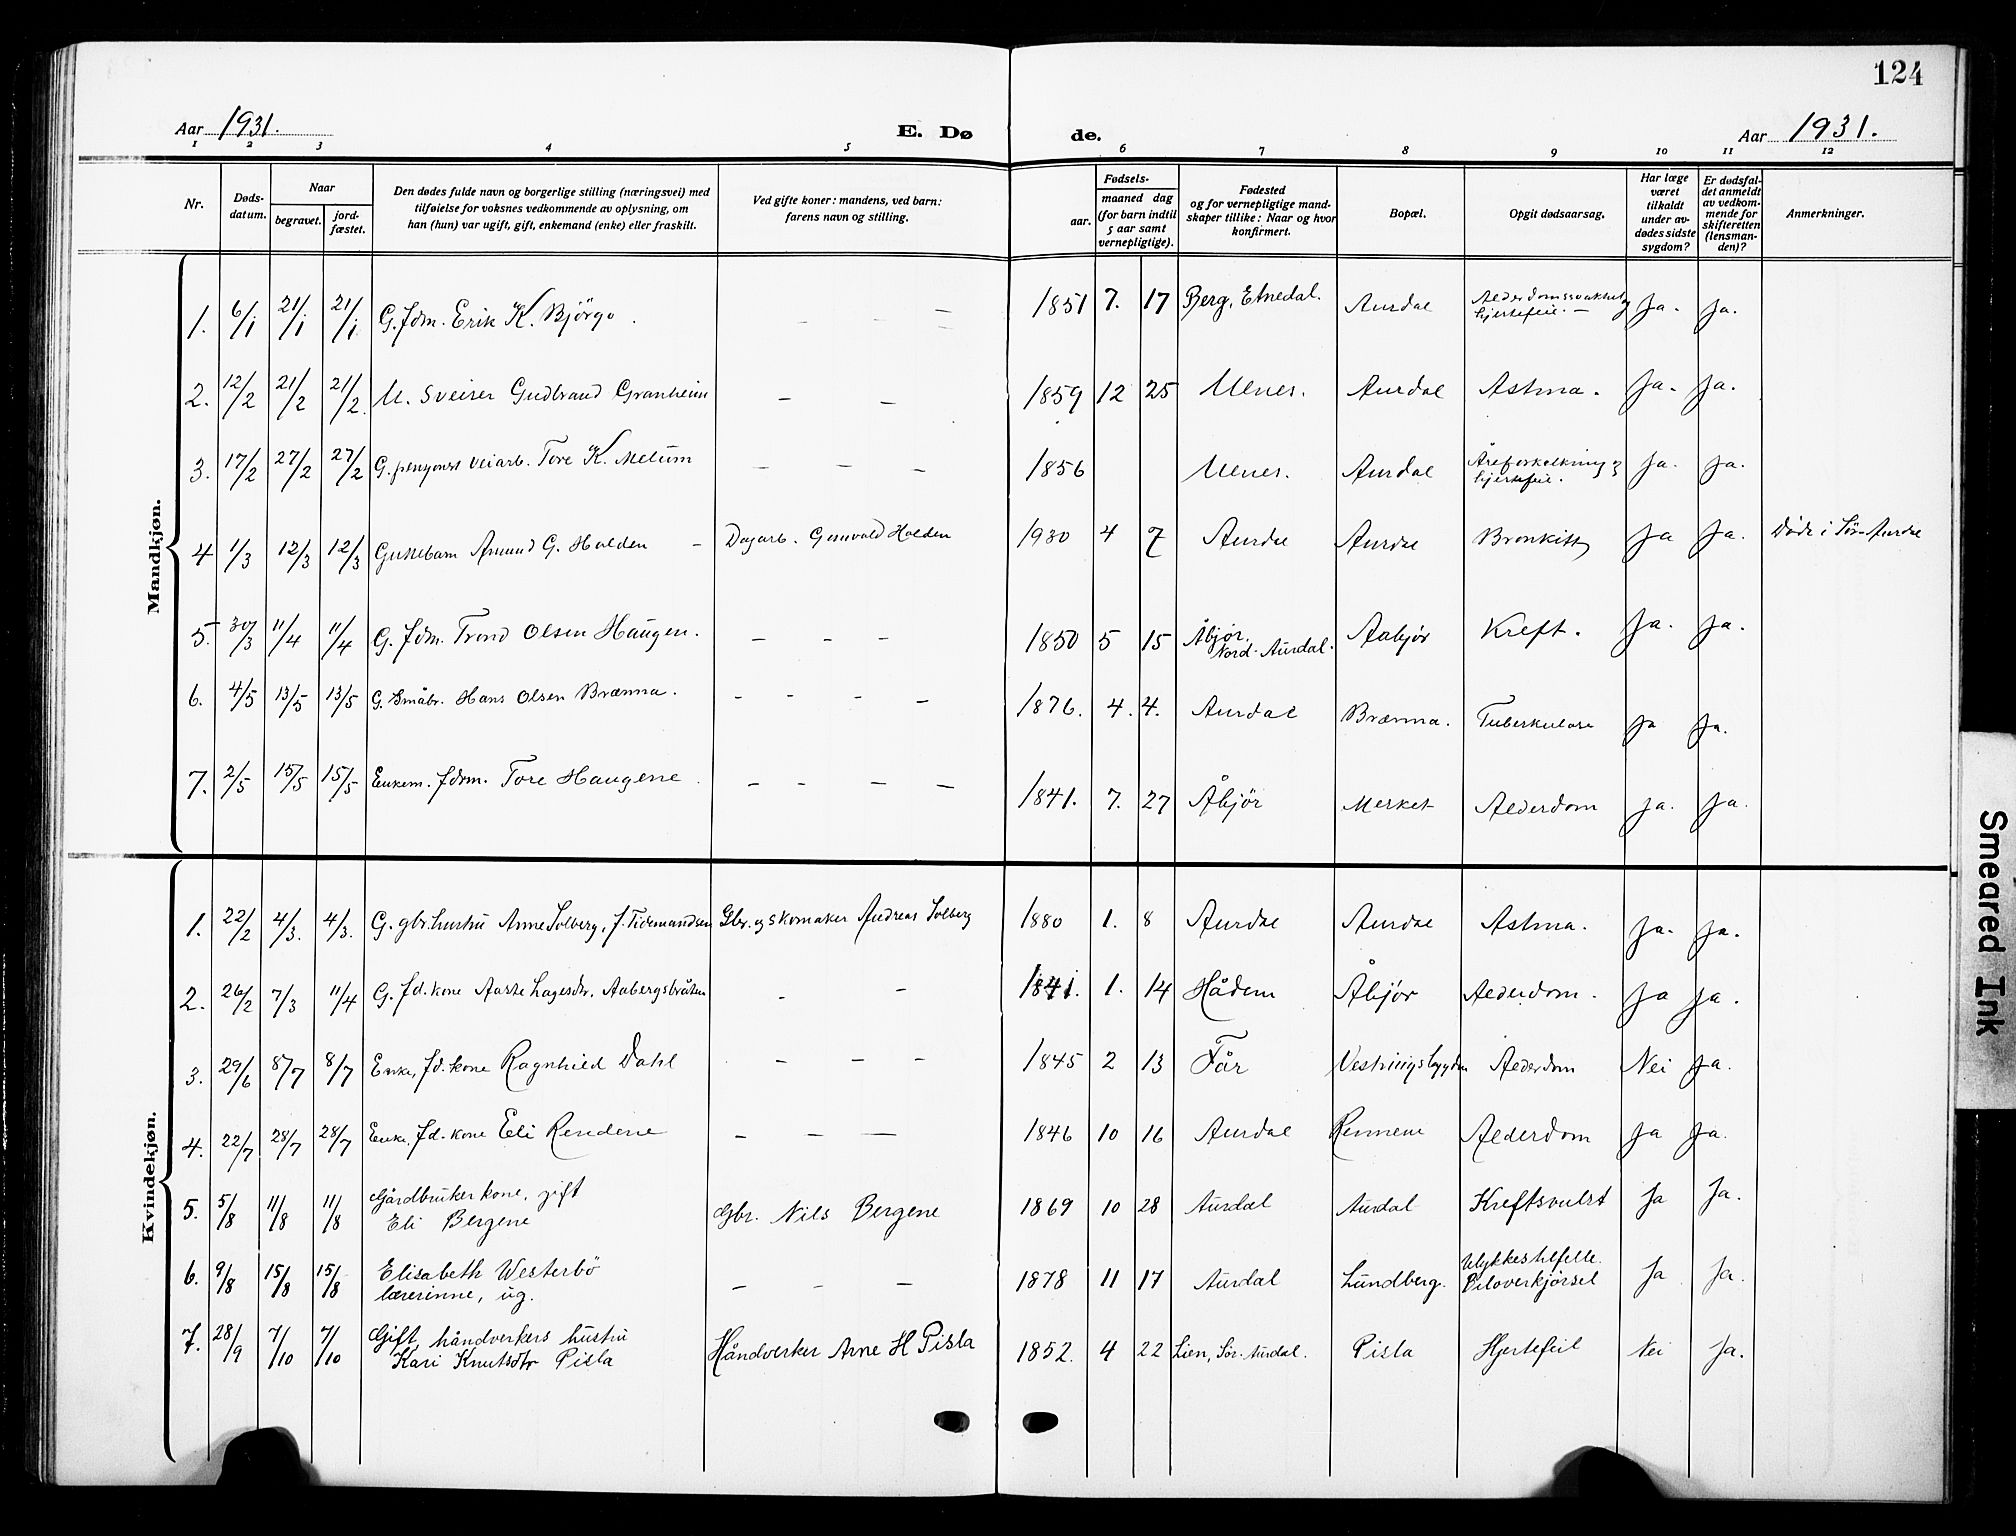 124
Aar 1931.
E. Dø de.
Aar 1931.
1 2 3 4 5 6 7 8 9 10 11 12
Nr.
Døds-
datum.
Naar
begravet.
jord-
fæstet.
Den dødes fulde navn og borgerlige stilling (næringsvei) med
tilføielse for voksnes vedkommende av oplysning, om
han (hun) var ugift, gift, enkemand (enke) eller fraskilt.
Ved gifte koner: mandens, ved barn:
farens navn og stilling.
Fødsels-
aar.
maaned dag
(for barn indtil
5 aar samt
vernepligtige).
Fødested
og for vernepligtige mand-
skaper tillike: Naar og hvor
konfirmert.
Bopæl.
Opgit dødsaarsag.
Har læge
været
tilkaldt
under av-
dødes sidste
sygdom?
Er dødsfal-
det anmeldt
av vedkom-
mende for
skifteretten
(lensman-
den)?
Anmerkninger.
Mandkjøn.
1. 6/1 21/1 21/1 G. fdm. Erik K. Bjørgo. – – – 1851 7. 17 Berg, Etnedal. Aurdal Alderdomssvakhet og hjertefeil. – Ja. Ja.
2. 12/2 21/2 21/2. U. sveiser Gudbrand Granheim – – 1859 12 25 Ulnes. Aurdal Astma. Ja. Ja.
3. 17/2 27/2 27/2 G. veiarb. Tore K. Melum – – – 1856 Ulnes. Aurdal Åreforkalkning og hjertefeil. Ja. Ja.
4 1/3 12/3 12/3 Guttebarn Amund G. Holden – Dagarb. Gunvald Holden 1930 4 7 Aurdal Aurdal Bronkitt Ja Ja. Døde i Sør-Aurdal
5. 30/3 11/4 11/4 G. fdm. Trond Olsen Haugen. – – – 1850 5 15 Åbjør, Nord-Aurdal. Aabjør Kreft. Ja. Ja.
6. 4/5 13/5 13/5 G. Småbr. Hans Olsen Brænna. – – – – 1876. 4. 4. Aurdal Brænna. Tuberkulose Ja Ja.
7. 2/5 15/5 15/5 Enkem. fdrm. Tore Haugene – – – – 1841. 7. 27 Åbjør Merket Alderdom Ja. Ja.
Kvindekjøn.
1. 22/2 4/3. 4/3. G. gbr. hustru Anne Solberg, f. Tidemandsen Gbr. og skomaker Andreas Solberg 1880 1. 8 Aurdal Aurdal Astma. Ja. Ja.
2. 26/2 7/3 11/4 G. fd. kone Aaste Lagesdtr. Aabergsbråten – – 1841. 1. 14 Hådem Åbjør Alderdom. Ja Ja.
3. 29/6 8/7 8/7 Enke, fd. kone Ragnhild Dahl – – – 1845 2 13 Får Vestringsbygden Alderdom Nei Ja.
4. 22/7 28/7 28/7 Enke, fd. kone Eli Rendene – – — 1846 10 16 Aurdal Rennene Alderdom Ja Ja.
5. 5/8 11/8 11/8 Gårdbruker kone, gift
Eli Bergene Gbr. Nils Bergene 1869 10 28 Aurdal Aurdal Kreftsvulst Ja Ja.
6. 9/8 15/8 15/8 Elisabeth Westerbö
lærerinne, ug. – – – 1878 11 17 Aurdal Lundberg. Ulykkestilfelle. Biloverkjørsel Ja Ja.
7. 28/9 7/10 7/10 Gift håndverkers hustru
Kari Knutsdtr Pisla Håndverker Arne H Pisla 1852. 4 22 Lien, Sør-Aurdal. Pisla Hjertefeil Nei Ja.
Smeared Ink